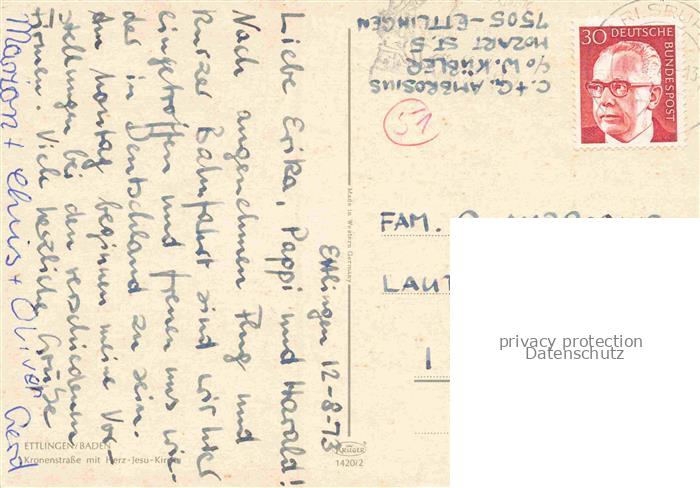 Ettlingen 12-8-73
Liebe Erika, Pappi und Harald!
Nach angenehmen Flug und
kurzer Bahnfahrt sind wir hier
eingetroffen und freuen uns wie-
der in Deutschland zu sein.
Am Montag beginnen meine Vor-
stellungen bei den verschiedenen
Firmen. Viele herzliche Grüße
Gerd
Marion + Chris + Oliver
C. + G. AMBROSIUS
c/o W. KÜBLER
MOZART ST. 5
7505-ETTLINGEN
51
30 DEUTSCHE
BUNDESPOST
FAM.
LAUT
Made in Western Germany
KRÜGER
1420/2
ETTLINGEN/BADEN
Kronenstraße mit Herz-Jesu-Kirche
privacy protection
Datenschutz